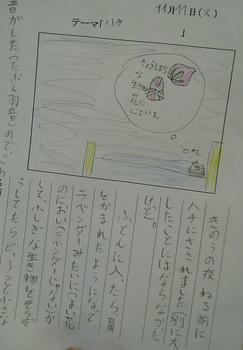 11月11日(火)
テーマ「ハチ」
きょうぼう
な
生き物
が
花に
にている。
きのうの夜 ねる前に
ハチにさされました(別に大
したことにはならなかった
けど)。
ふとんに入ったら、鼻
をかまれたようになって、
ラベンダーみたいにいい花
のにおい(ラベンダーじゃない)が
して、ふしぎな生き物をそうぞ
うしてたらブーンと小さな
音がした(たぶん羽音)ので、